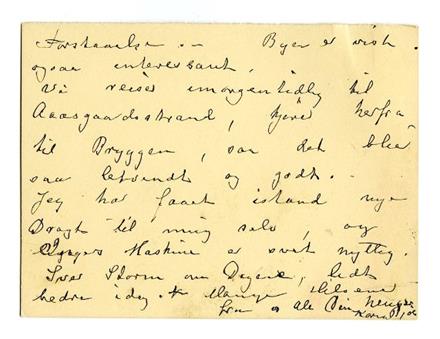 Forstaaelse. — Byen er vist
ogsaa interessant.
Vi reiser imorgentidlig til
Aaasgaardsstrand, kjøre herfra
til Bryggen, saa det blir
saa letvindt og godt. —
Jeg har faaet istand nye
Dragt til mig selv, og
Maskine er svært nyttig.
Svær Storm om Dagene, lidt
bedre idag. Mange Hilsener
fra os alle Din